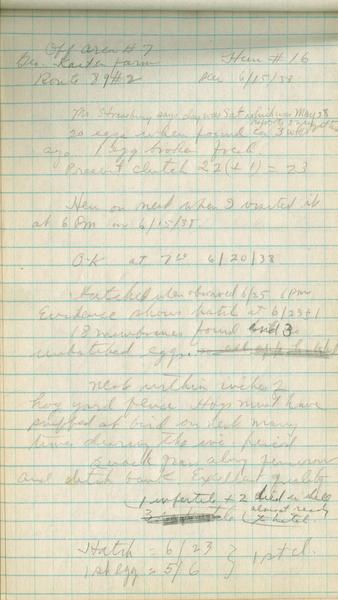 Off area #7
Geo. Kaiser farm Hen #16
Route 89#2 6/15/38
Mr. Strassburg says day was Sat which was May 28
20 eggs when found ca 3 wks
ago. 1 egg broken fresh
Present clutch 22 (+1) = 23
Hen on nest when I visited it
at 6 PM on 6/15/38.
O.K. at 7:00 6/20/38
Hatched when observed 6/25 6 PM
Evidence shows hatch at 6/23±1
18 membranes found and 3
unhatched eggs.
nest within inches
hog yard fence. Hogs must have
sniffed at bird on nest many
times during the inc. period
quack grass along fencerow
and ditch bank. Excellent quality
1 infertile + 2 died in shell
almost ready
to hatch
Hatch = 6/23
1st egg = 5/6 } 1st cl.